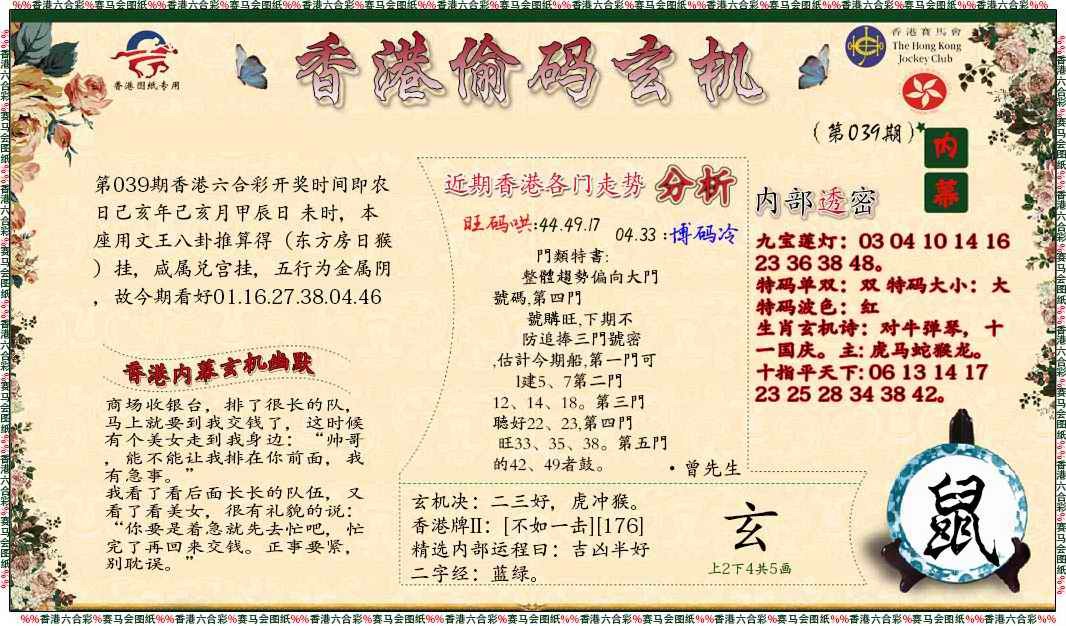 %%香港六合彩%赛马会图纸%%香港六合彩%赛马会图纸%%香港六合彩%赛马会图纸%%香港六合彩%赛马会图纸%%香港六合彩%赛马会图纸%%香港六合彩%赛马会图纸%%香港六合彩%%
香港图纸专用
香港偷码玄机
香港賽馬會
The Hong Kong
Jockey Club
(第039期)
内
幕
第039期香港六合彩开奖时间即农
日己亥年己亥月甲辰日 未时，本
座用文王八卦推算得（东方房日猴
）挂，咸属兑宫挂，五行为金属阴
，故今期看好01.16.27.38.04.46
香港内幕玄机幽默
商场收银台，排了很长的队，
马上就要到我交钱了，这时候
有个美女走到我身边：“帅哥
，能不能让我排在你前面，我
有急事。”
我看了看后面长长的队伍，又
看了看美女，很有礼貌的说：
“你要是着急就先去忙吧，忙
完了再回来交钱。正事要紧，
别耽误。”
近期香港各门走势 分析
旺码哄:44.49.17
04.33 :博码冷
門類特書:
整體趨勢偏向大門
號碼,第四門
號購旺,下期不
防追捧三門號密
,估計今期船,第一門可
1建5、7第二門
12、14、18。第三門
聽好22、23,第四門
旺33、35、38。第五門
的42、49者鼓。
·曾先生
内部透密
九宝莲灯：03 04 10 14 16
23 36 38 48。
特码单双：双 特码大小：大
特码波色：红
生肖玄机诗：对牛弹琴，十
一国庆。主: 虎马蛇猴龙。
十指平天下: 06 13 14 17
23 25 28 34 38 42。
玄机决：二三好，虎冲猴。
香港牌II：[不如一击][176]
精选内部运程曰：吉凶半好
二字经：蓝绿。
玄
上2下4共5画
鼠
%%香港六合彩%赛马会图纸%%香港六合彩%赛马会图纸%%香港六合彩%赛马会图纸%%香港六合彩%赛马会图纸%%香港六合彩%赛马会图纸%%香港六合彩%赛马会图纸%%香港六合彩%%